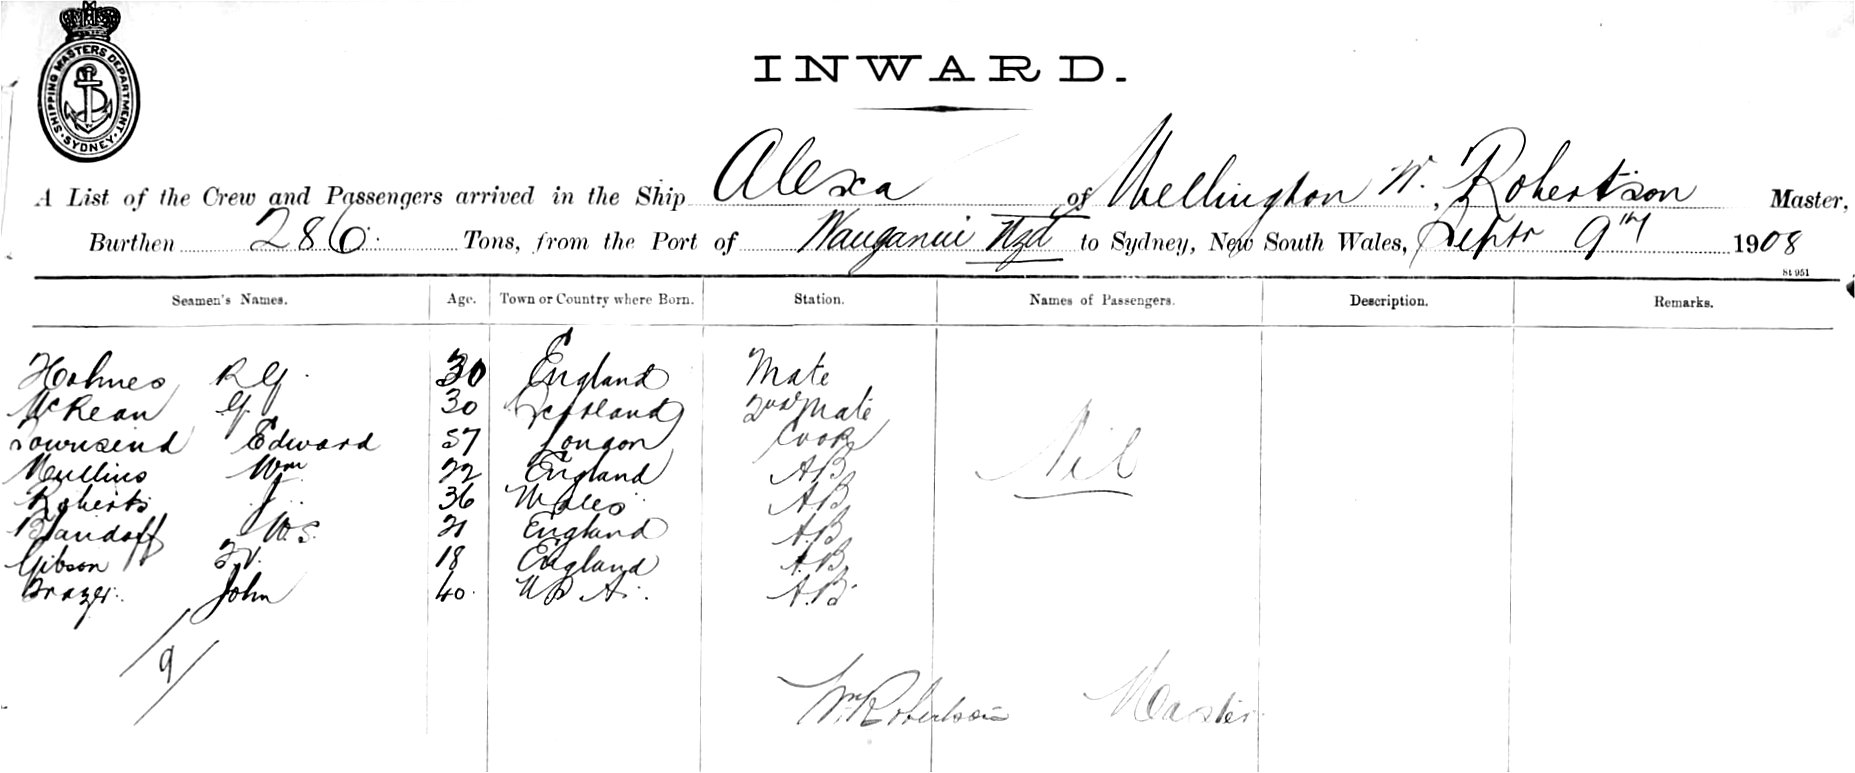 SHIPPING MASTERS DEPARTMENT
SYDNEY
INWARD.
A List of the Crew and Passengers arrived in the Ship Alexa of Wellington W. Robertson Master,
Burthen 286 Tons, from the Port of Wanganui Nzd to Sydney, New South Wales, Septr 9th 1908
St 951
Seamen's Names. Age. Town or Country where Born. Station. Names of Passengers. Description. Remarks.
Holmes R G 30 England Mate
McKean G. 30 Scotland 2nd Mate
Townsend Edward 57 London Cook
Mullins Wm 22 England AB
Roberts J. 36 Wales AB
Nil
W.S. 21 England A.B
Gibson 18 England A.B
Frazer John 40 U S A. A.B
9
Wm Robertson Master